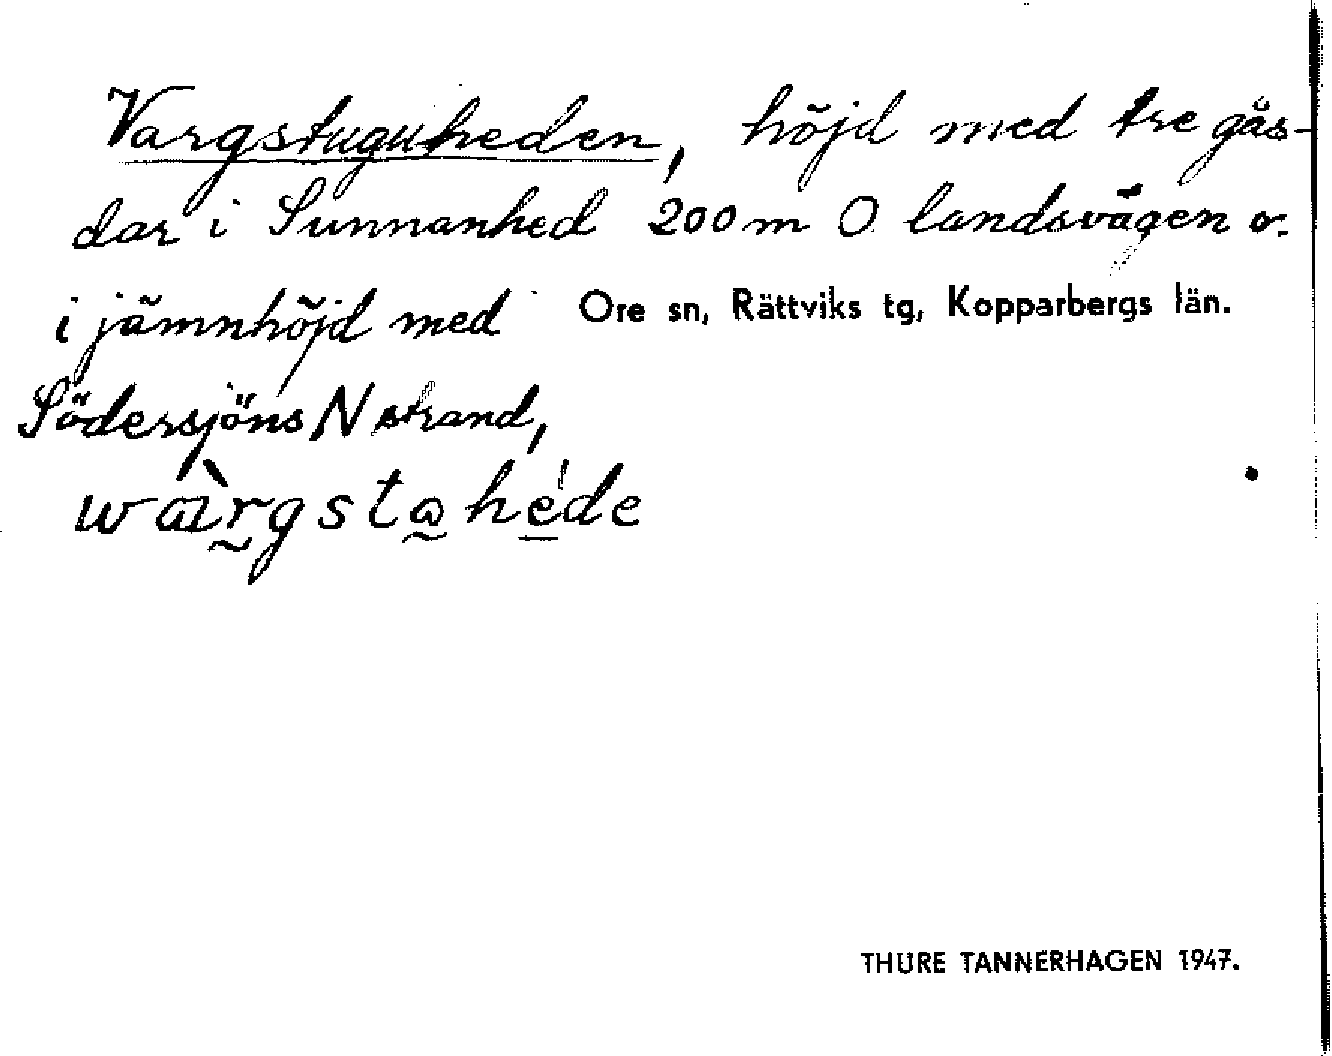 Vargstuguheden, höjd med tre går-
dar i Sunnanhed 200 m O landsvägen o.
i jämnhöjd med Ore sn, Rättviks tg, Kopparbergs län.
Södersjöns N strand,
THURE TANNERHAGEN 1947.